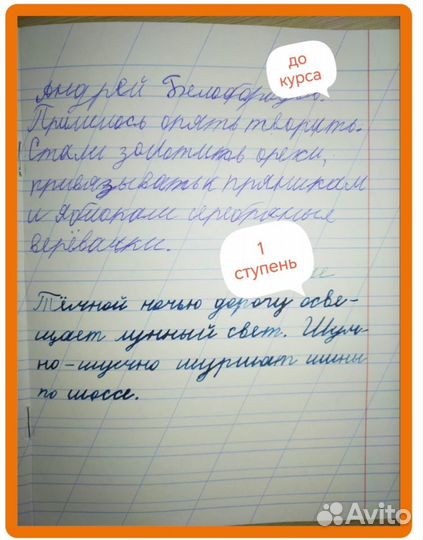 до
курса
Андрей
Пришлось опять творить.
Стали золотить орехи,
привязывать к пряникам
и яблокам серебряные
верёвачки.
1
ступень
Тёмной ночью дорогу осве-
щает лунный свет. Шум-
но-шумно шуршат шины
по шоссе.
Avito